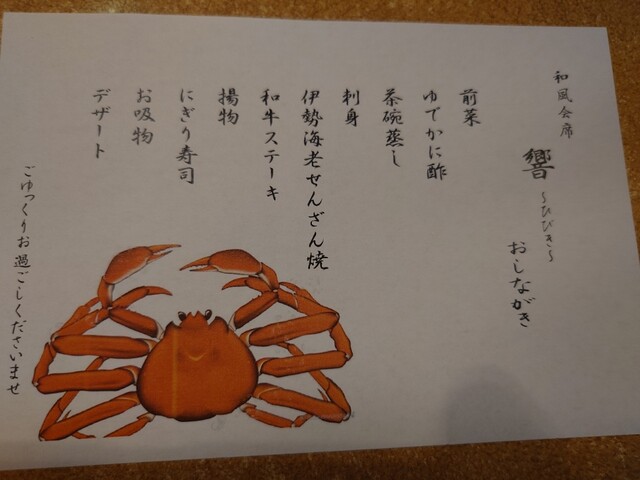 和風会席
響 ~ひびき~
おしながき
前菜
ゆでかに酢
茶碗蒸し
刺身
伊勢海老せんざん焼
和牛ステーキ
揚物
にぎり寿司
お吸物
デザート
ごゆっくりお過ごしくださいませ